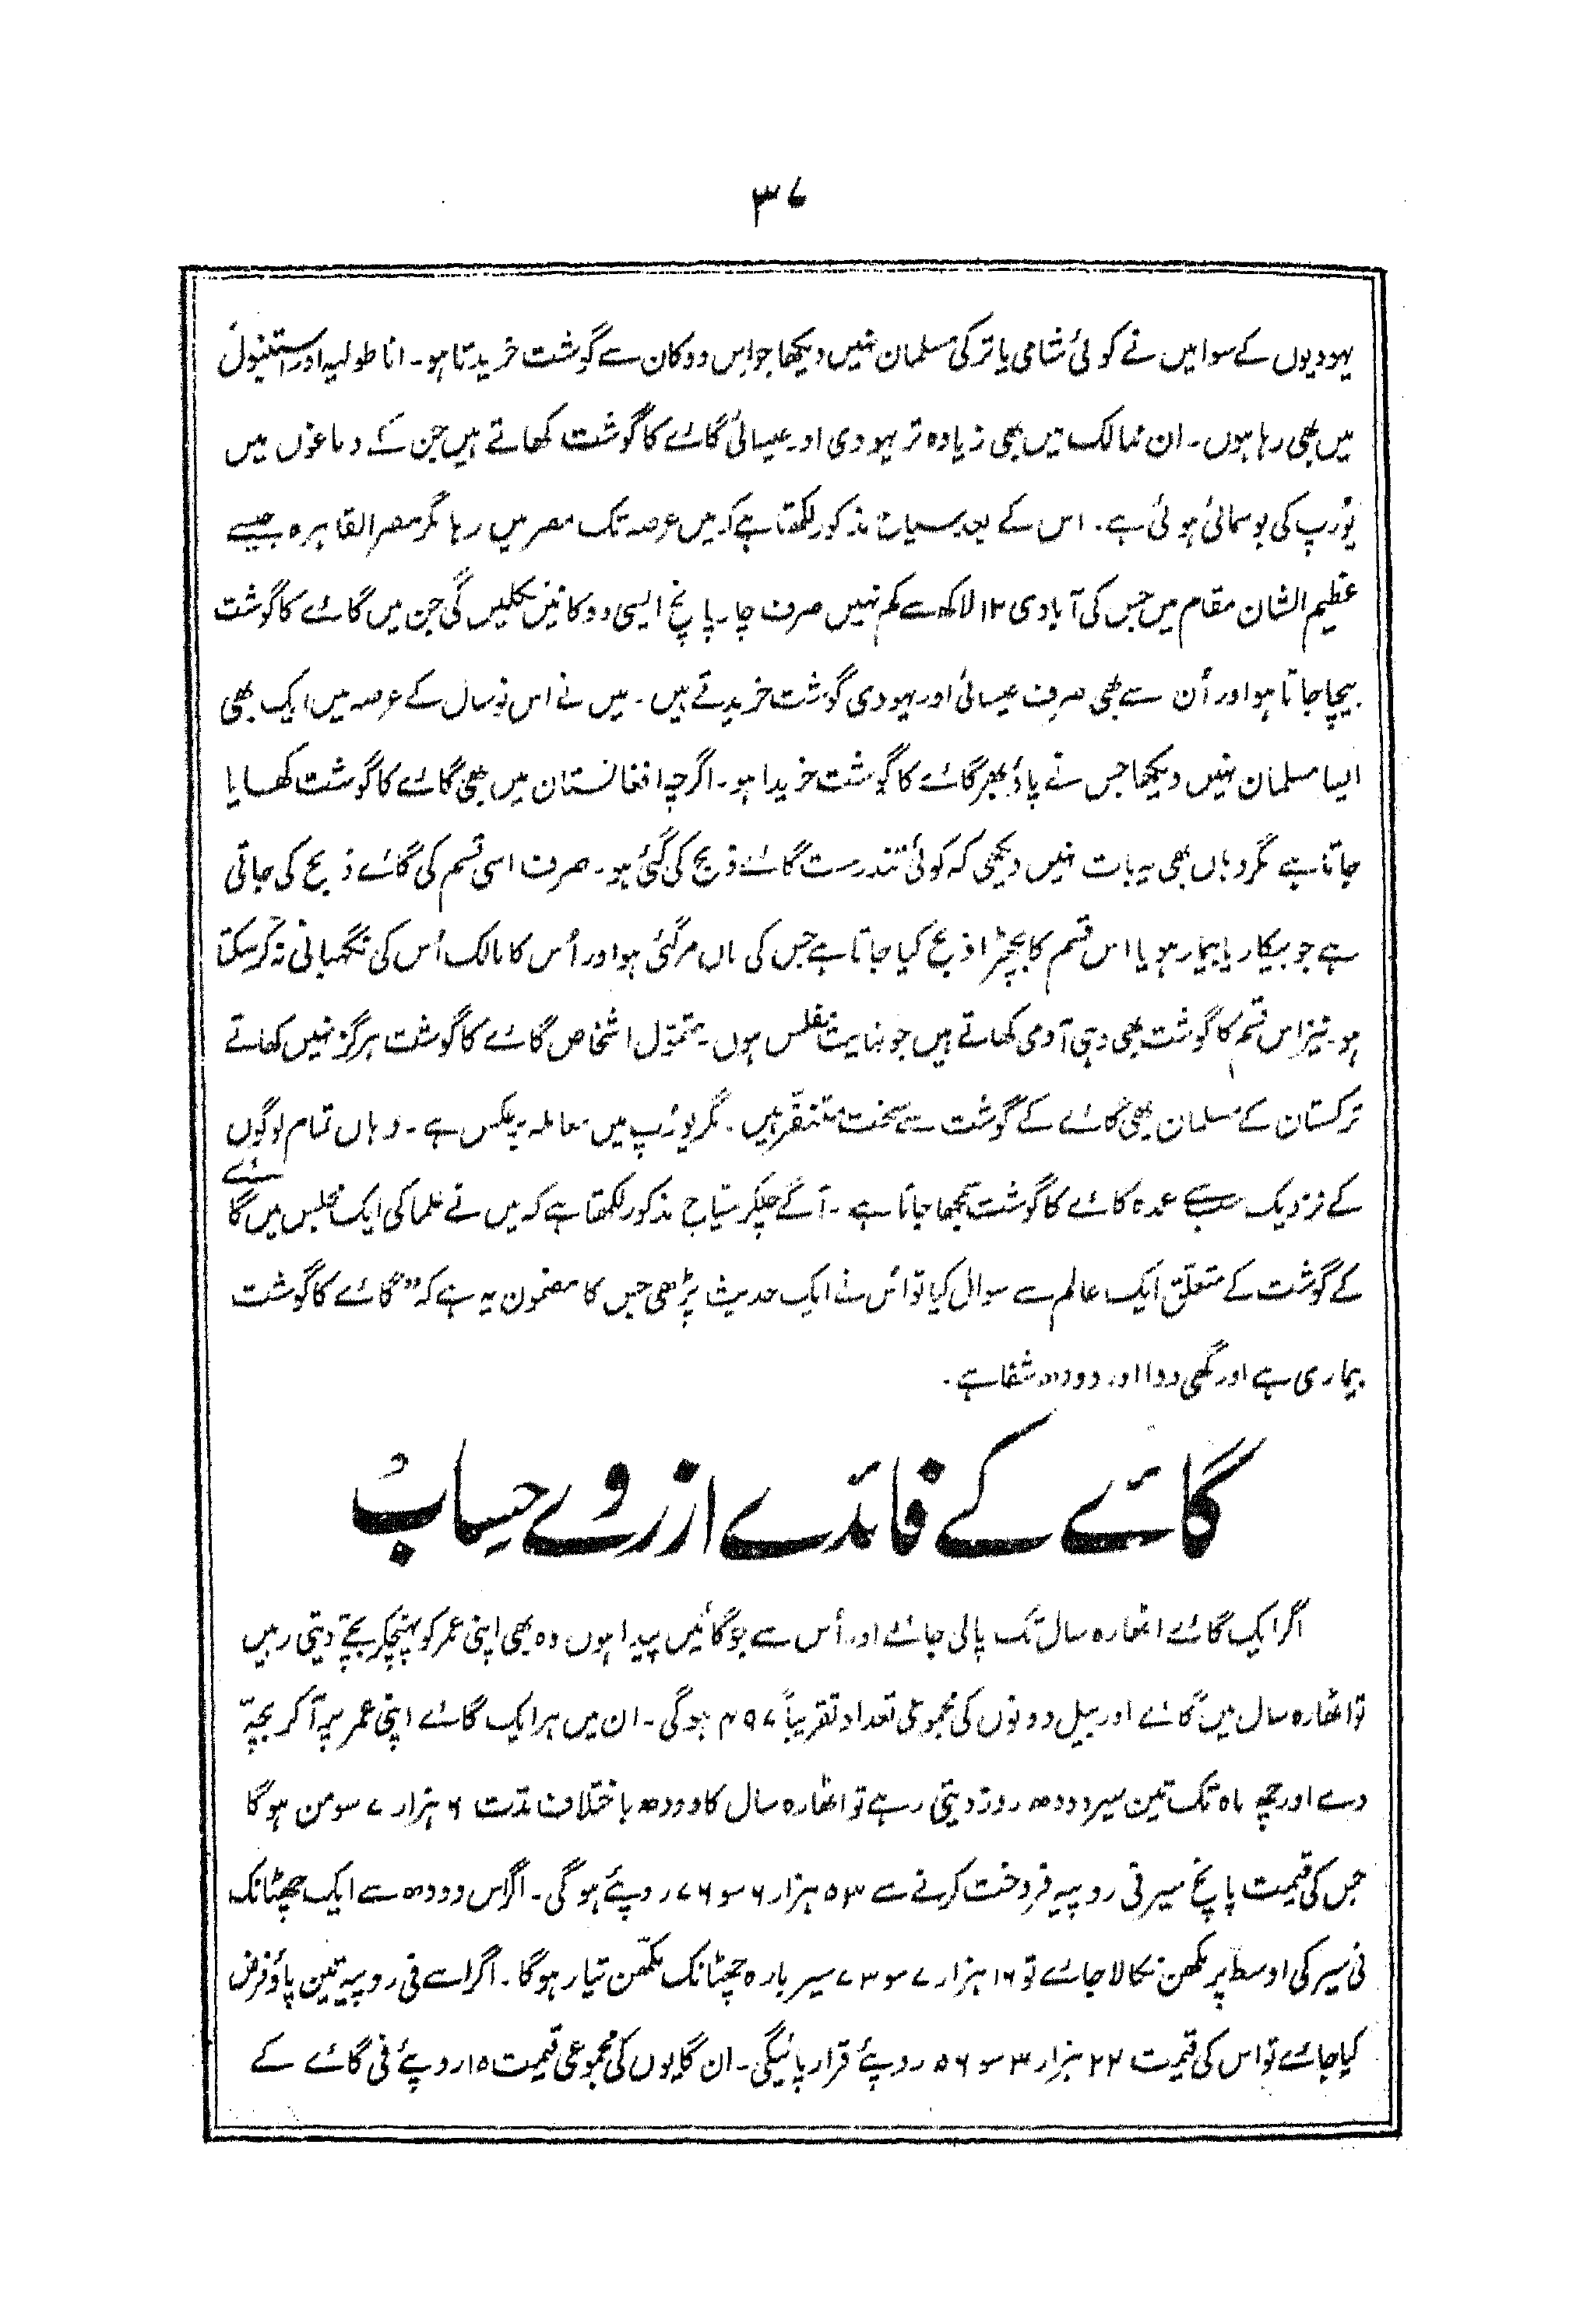 ۳۷
یہودیوں کے سوا میں نے کوئی شامی یا ترکی مسلمان نہیں دیکھا جو اس دوکان سے گوشت خریدتا ہو۔ اناطولیہ اور استنبول
میں بھی رہا ہوں۔ ان ممالک میں بھی زیادہ تر یہودی اور عیسائی گائے کا گوشت کھاتے ہیں جن کے دماغوں میں
یورپ کی بو سمائی ہوئی ہے۔ اس کے بعد سیاح مذکور لکھتا ہے کہ میں عرصہ تک مصر میں رہا مگر مصر القاہرہ جیسے
عظیم الشان مقام میں جس کی آبادی ۱۲ لاکھ سے کم نہیں صرف چار پانچ ایسی دوکانیں نکلیں گی جن میں گائے کا گوشت
بیچا جاتا ہو اور اُن سے بھی صرف عیسائی اور یہودی گوشت خریدتے ہیں۔ میں نے اس نو سال کے عرصہ میں ایک بھی
ایسا مسلمان نہیں دیکھا جس نے پاؤ بھر گائے کا گوشت خریدا ہو۔ اگرچہ افغانستان میں بھی گائے کا گوشت کھایا
جاتا ہے مگر وہاں بھی یہ بات نہیں دیکھی کہ کوئی تندرست گائے ذبح کی گئی ہو۔ صرف اسی قسم کی گائے ذبح کی جاتی
ہے جو بیکار یا بیمار ہو یا اس قسم کا بچھڑا ذبح کیا جاتا ہے جس کی ماں مر گئی ہو اور اُس کا مالک اُس کی نگہبانی نہ کر سکتا
ہو۔ نیز اس قسم کا گوشت بھی وہی آدمی کھاتے ہیں جو نہایت مفلس ہوں۔ متموّل اشخاص گائے کا گوشت ہرگز نہیں کھاتے
ترکستان کے مسلمان بھی گائے کے گوشت سے سخت متنفّر ہیں۔ مگر یورپ میں معاملہ برعکس ہے۔ وہاں تمام لوگوں
کے نزدیک سب سے عمدہ گائے کا گوشت سمجھا جاتا ہے۔ آگے چلکر سیّاح مذکور لکھتا ہے کہ میں نے علما کی ایک مجلس میں گائے
کے گوشت کے متعلّق ایک عالم سے سوال کیا تو اُس نے ایک حدیث پڑھی جس کا مضمون یہ ہے کہ "گائے کا گوشت
بیماری ہے اور گھی دوا اور دودھ شفا ہے۔
گائے کے فائدے از روئے حساب
اگر ایک گائے اٹھارہ سال تک پالی جائے اور اُس سے جو گائیں پیدا ہوں وہ بھی اپنی عمر کو پہنچکر بچّے دیتی رہیں
تو اٹھارہ سال میں گائے اور بیل دونوں کی مجموعی تعداد تقریباً ۴۹۷ ہوگی۔ ان میں ہر ایک گائے اپنی عمر پر آکر بچّہ
دے اور چھ ماہ تک تین سیر دودھ روز دیتی رہے تو اٹھارہ سال کا دودھ باختلاف مدّت ۶ ہزار ۷ سو من ہوگا
جس کی قیمت پانچ سیر فی روپیہ فروخت کرنے سے ۵۳ ہزار ۶ سو ۷۶ روپئے ہوگی۔ اگر اس دودھ سے ایک چھٹانک
فی سیر کی اوسط پر مکھن نکالا جائے تو ۱۶ ہزار ۷ سو ۷۳ سیر بارہ چھٹانک مکھّن تیار ہوگا۔ اگر اسے فی روپیہ تین پاؤ فرض
کیا جائے تو اس کی قیمت ۲۲ ہزار ۳ سو ۵۶ روپئے قرار پائیگی۔ ان گایوں کی مجموعی قیمت ۱۵ روپئے فی گائے کے